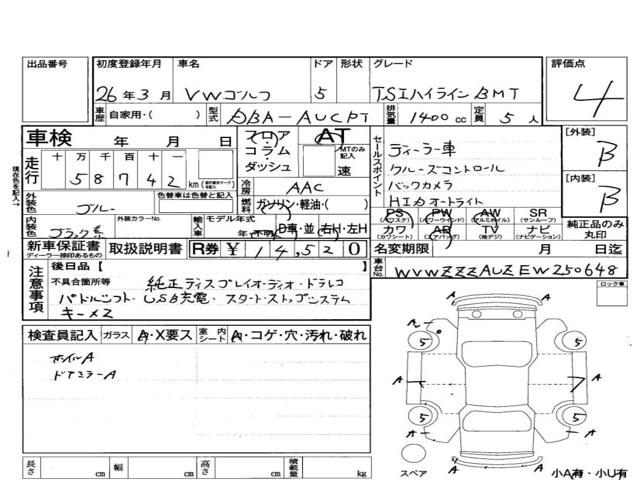 出品番号 初度登録年月 車名 ドア 形状 グレード 評価点
26年3月 VWゴルフ 5 TSIハイラインBMT 4
車歴 自家用・( ) 型式 DBA-AUCPT 排気量 1400cc 定員 5人
車検 年 月 日 フロア コラム ダッシュ AT MTのみ記入 速
走行 十万千百十一 58742 km
冷房 AAC
外装色 ブルー 色替車は色替と記入 燃料 ガソリン・軽油・( )
内装色 ブラック系 外装カラーNo. 輸入車 モデル年式 年(不明) D車・並 右H・左H
セールスポイント
ディーラー車
クルーズコントロール
バックカメラ
HIDオートライト
[外装] B
[内装] B
PS (パワステ) PW (パワーウインド) AW (アルミホイル) SR (サンルーフ)
カワ (カワシート) AB (エアバッグ) TV (地デジ) ナビ (ナビゲーション)
純正品のみ丸印
新車保証書 ディーラー捺印あるもの 取扱説明書 R券 ¥14,520 名変期限 月 日迄
車台No. WVWZZZAUZEW250648
注意事項 後日品【 】
不具合箇所等 純正ディスプレイオーディオ・ドラレコ
パドルシフト・USB充電・スタートストップシステム
キー×2
ロック車
検査員記入 ガラス A・X要ス 室内シート A・コゲ・穴・汚れ・破れ
ホイルA
ドアミラーA
A
A
5 5
A A 7 A
5 5
A A
A
スペア
小A有・小U有
長さ cm 幅 cm 高さ cm 積載量 kg